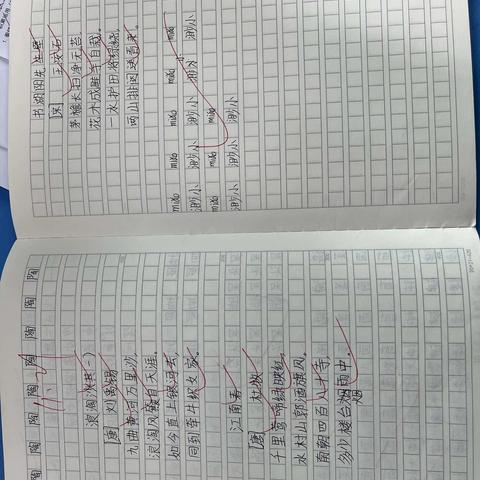 陶 陶 陶 陶 陶 陶 陶
浪淘沙(其一)
[唐] 刘禹锡
九曲黄河万里沙,
浪淘风簸自天涯。
如今直上银河去,
同到牵牛织女家。
江南春
[唐] 杜牧
千里莺啼绿映红,
水村山郭酒旗风。
南朝四百八十寺,
多少楼台烟雨中。
烟
书湖阴先生壁
[宋] 王安石
茅檐长扫净无苔,
花木成畦手自栽。
一水护田将绿绕,
两山排闼送青来。
miǎo miǎo miǎo miǎo miǎo
渺小 渺小 渺小 渺小 渺小
miǎo miǎo miǎo
渺小 渺小 渺小